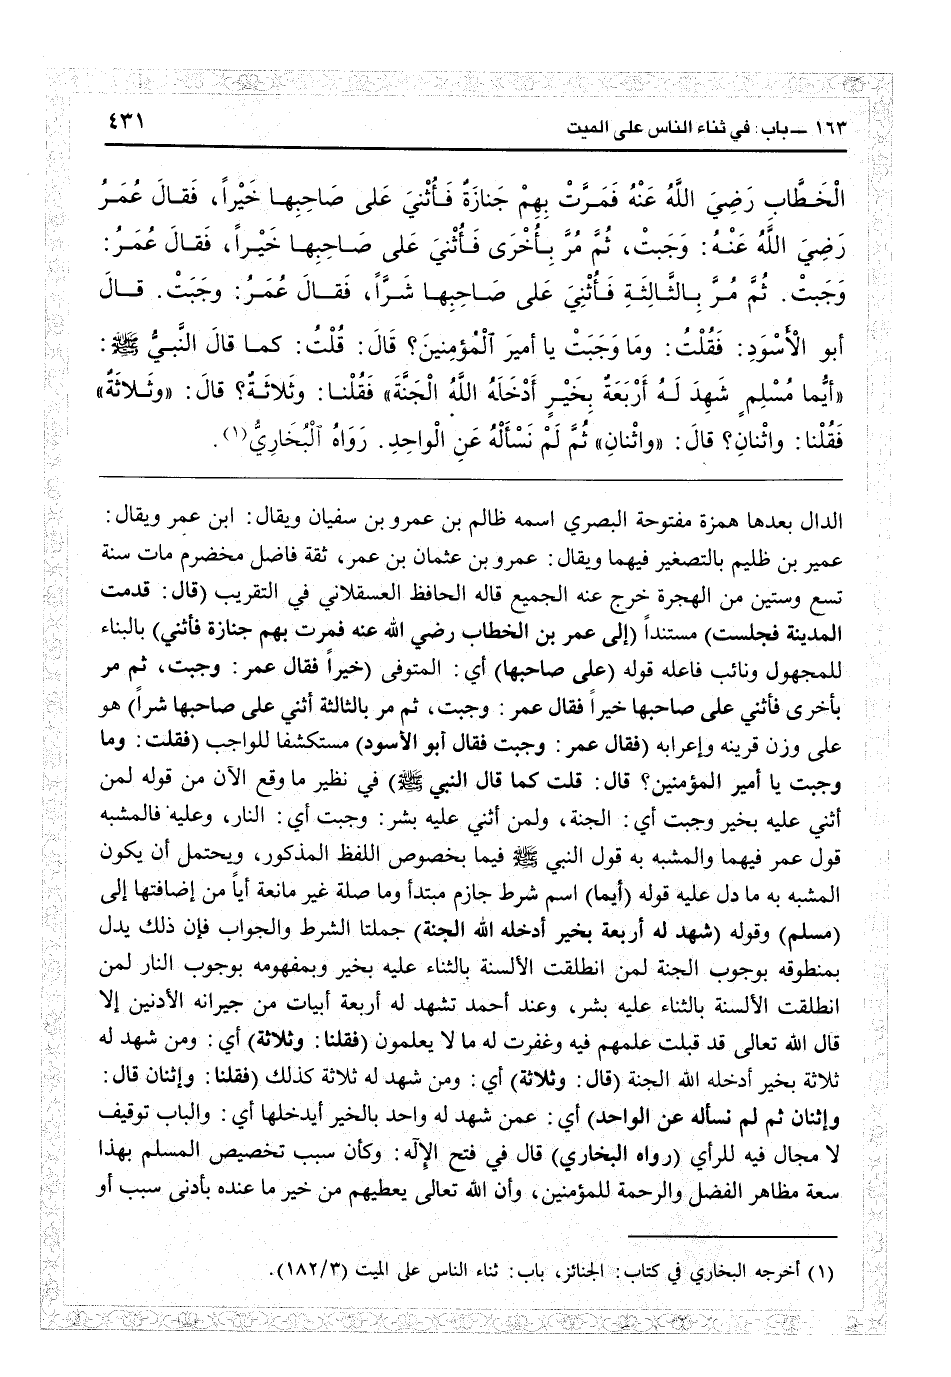 ١٦٣ ــ باب: في ثناء الناس على الميت
٤٣١
الْخَطَّابِ رَضِيَ اللَّهُ عَنْهُ فَمَرَّتْ بِهِمْ جَنازَةٌ فَأُثْنِيَ عَلى صَاحِبِها خَيْراً، فَقالَ عُمَرُ
رَضِيَ اللَّهُ عَنْهُ: وَجَبتْ، ثُمَّ مُرَّ بِأُخْرَى فَأُثْنِيَ عَلى صَاحِبِها خَيْراً، فَقالَ عُمَرُ:
وَجَبتْ. ثُمَّ مُرَّ بِالثَّالِثَةِ فَأُثْنِيَ عَلى صَاحِبِها شَرَّاً، فَقالَ عُمَرُ: وجَبتْ. قالَ
أبو الْأَسْوَدِ: فَقُلْتُ: ومَا وَجَبَتْ يا أميرَ ٱلْمُؤمِنينَ؟ قَالَ: قُلْتُ: كما قالَ النَّبيُّ ﷺ:
«أيُّما مُسْلِمٍ شَهِدَ لَهُ أَرْبَعَةٌ بِخَيْرٍ أَدْخَلَهُ اللَّهُ الْجَنَّةَ» فَقُلْنا: وثَلاثَةٌ؟ قالَ: «وثَلاثَةٌ»
فَقُلْنا: واثْنانِ؟ قالَ: «واثْنانِ» ثُمَّ لَمْ نَسْأَلْهُ عَنِ الْواحِدِ. رَوَاهُ ٱلْبُخَارِيُّ(١).
الدال بعدها همزة مفتوحة البصري اسمه ظالم بن عمرو بن سفيان ويقال: ابن عمر ويقال:
عمير بن ظليم بالتصغير فيهما ويقال: عمرو بن عثمان بن عمر، ثقة فاضل مخضرم مات سنة
تسع وستين من الهجرة خرج عنه الجميع قاله الحافظ العسقلاني في التقريب (قال: قدمت
المدينة فجلست) مستنداً (إلى عمر بن الخطاب رضي الله عنه فمرت بهم جنازة فأثني) بالبناء
للمجهول ونائب فاعله قوله (على صاحبها) أي: المتوفى (خيراً فقال عمر: وجبت، ثم مر
بأخرى فأثني على صاحبها خيراً فقال عمر: وجبت، ثم مر بالثالثة أثني على صاحبها شراً) هو
على وزن قرينه وإعرابه (فقال عمر: وجبت فقال أبو الأسود) مستكشفا للواجب (فقلت: وما
وجبت يا أمير المؤمنين؟ قال: قلت كما قال النبي ﷺ) في نظير ما وقع الآن من قوله لمن
أثني عليه بخير وجبت أي: الجنة، ولمن أثني عليه بشر: وجبت أي: النار، وعليه فالمشبه
قول عمر فيهما والمشبه به قول النبي ﷺ فيما بخصوص اللفظ المذكور، ويحتمل أن يكون
المشبه به ما دل عليه قوله (أيما) اسم شرط جازم مبتدأ وما صلة غير مانعة أياً من إضافتها إلى
(مسلم) وقوله (شهد له أربعة بخير أدخله الله الجنة) جملتا الشرط والجواب فإن ذلك يدل
بمنطوقه بوجوب الجنة لمن انطلقت الألسنة بالثناء عليه بخير وبمفهومه بوجوب النار لمن
انطلقت الألسنة بالثناء عليه بشر، وعند أحمد تشهد له أربعة أبيات من جيرانه الأدنين إلا
قال الله تعالى قد قبلت علمهم فيه وغفرت له ما لا يعلمون (فقلنا: وثلاثة) أي: ومن شهد له
ثلاثة بخير أدخله الله الجنة (قال: وثلاثة) أي: ومن شهد له ثلاثة كذلك (فقلنا: وإثنان قال:
وإثنان ثم لم نسأله عن الواحد) أي: عمن شهد له واحد بالخير أيدخلها أي: والباب توقيف
لا مجال فيه للرأي (رواه البخاري) قال في فتح الإلٰه: وكأن سبب تخصيص المسلم بهذا
سعة مظاهر الفضل والرحمة للمؤمنين، وأن الله تعالى يعطيهم من خير ما عنده بأدنى سبب أو
(١) أخرجه البخاري في كتاب: الجنائز، باب: ثناء الناس على الميت (١٨٢/٣).